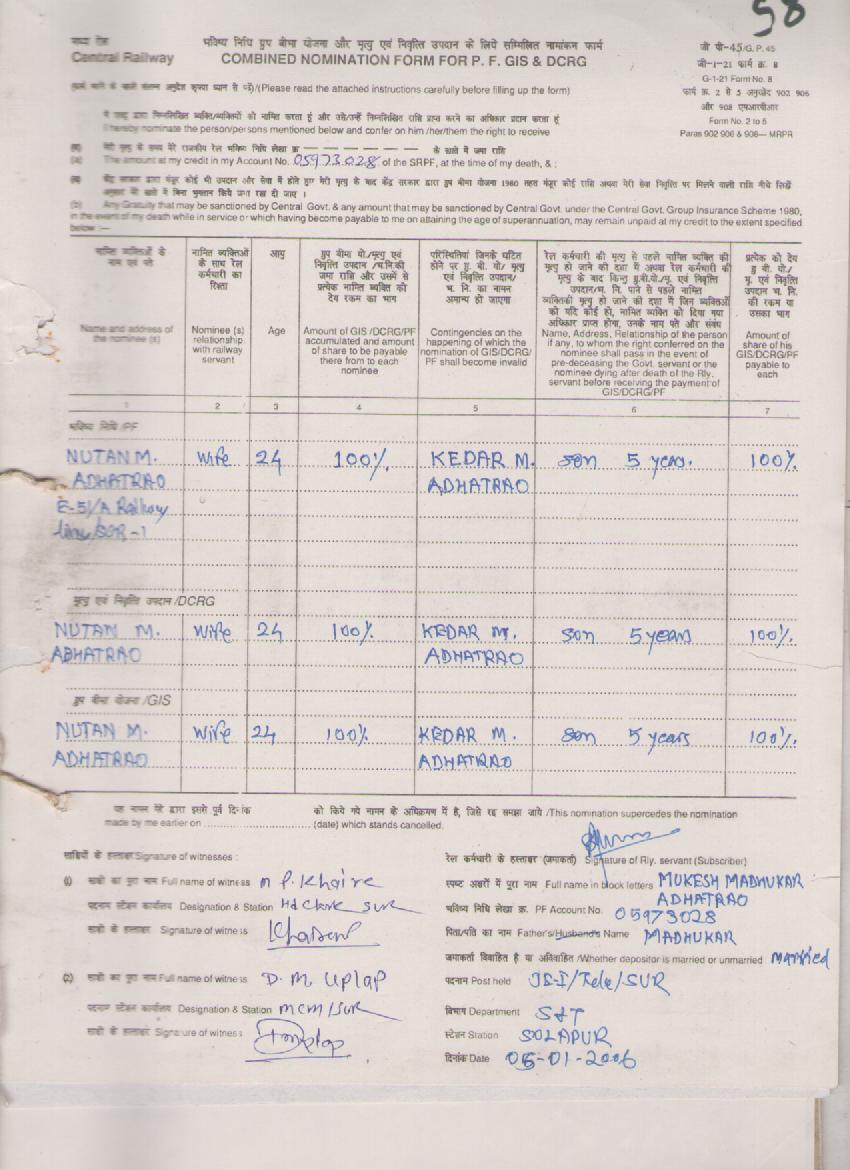 58
मध्य रेल
Central Railway
भविष्य निधि ग्रुप बीमा योजना और मृत्यु एवं निवृत्ति उपदान के लिये सम्मिलित नामांकन फार्म
COMBINED NOMINATION FORM FOR P. F. GIS & DCRG
जी पी-45/G. P. 45
जी-1-21 फार्म क्र. 8
G-1-21 Form No. 8
फार्म क्र. 2 से 5 अनुच्छेद 902 906
और 908 एमआरपीआर
Form No. 2 to 5
Paras 902 906 & 908— MRPR
/(Please read the attached instructions carefully before filling up the form)
मैं एतद् द्वारा निम्नलिखित व्यक्ति/व्यक्तियों को नामित करता हूं और उसे/उन्हें निम्नलिखित राशि प्राप्त करने का अधिकार प्रदान करता हूं
I hereby nominate the person/persons mentioned below and confer on him/her/them the right to receive
मेरी मृत्यु के समय मेरे राजकीय रेल भविष्य लेखा क्र — — — — — — — के खाते में जमा राशि
(a) The amount at my credit in my Account No. 05973028 of the SRPF, at the time of my death, & :
केंद्र सरकार द्वारा मंजूर कोई भी उपदान और सेवा में होते हुए मेरी मृत्यु के बाद केंद्र सरकार द्वारा ग्रुप बीमा योजना 1980 तहत मंजूर कोई राशि अथवा मेरी सेवा निवृत्ति पर मिलने वाली राशि नीचे लिखे
अनुसार मेरे खाते में बिना भुगतान किये जमा रख दी जाए ।
(b) Any Gratuity that may be sanctioned by Central Govt. & any amount that may be sanctioned by Central Govt. under the Central Govt. Group Insurance Scheme 1980,
in the event of my death while in service or which having become payable to me on attaining the age of superannuation, may remain unpaid at my credit to the extent specified
below :—
नामित व्यक्तियों के नाम एवं पते
Name and address of the nominee (s)
नामित व्यक्तिओं के साथ रेल कर्मचारी का रिश्ता
Nominee (s) relationship with railway servant
आयु
Age
ग्रुप बीमा यो./मृत्यु एवं निवृत्ति उपदान /भ.नि.की जमा राशि और उसमें से प्रत्येक नामित व्यक्ति को देय रकम का भाग
Amount of GIS /DCRG/PF accumulated and amount of share to be payable there from to each nominee
परिस्थितियां जिनके घटित होने पर ग्रु. बी. यो/ मृत्यु एवं निवृत्ति उपदान/ भ. नि. का नामन अमान्य हो जाएगा
Contingencies on the happening of which the nomination of GIS/DCRG/ PF shall become invalid
रेल कर्मचारी की मृत्यु से पहले नामित व्यक्ति की मृत्यु हो जाने की दशा में अथवा रेल कर्मचारी की मृत्यु के बाद किन्तु ग्रु.बी.यो./मृ. एवं निवृत्ति उपदान/भ. नि. पाने से पहले नामित व्यक्तिकी मृत्यु हो जाने की दशा में जिन व्यक्तिओं को यदि कोई हो, नामित व्यक्ति को दिया गया अधिकार प्राप्त होगा, उनके नाम पते और संबंध
Name, Address, Relationship of the person if any, to whom the right conferred on the nominee shall pass in the event of pre-deceasing the Govt. servant or the nominee dying after death of the Rly. servant before receiving the payment of GIS/DCRG/PF
प्रत्येक को देय ग्रु बी. यो./ मृ. एवं निवृत्ति उपदान भ. नि. की रकम या उसका भाग
Amount of share of his GIS/DCRG/PF payable to each
1 2 3 4 5 6 7
भविष्य निधि /PF
NUTAN M. wife 24 100% KEDAR M. son 5 years. 100%
ADHATRAO ADHATRAO
E-51/A Railway
line SUR-1
मृत्यु एवं निवृत्ति उपदान /DCRG
NUTAN M. wife 24 100% KEDAR M. son 5 years 100%
ADHATRAO ADHATRAO
ग्रुप बीमा योजना /GIS
NUTAN M. wife 24 100% KEDAR M. son 5 years 100%
ADHATRAO ADHATRAO
यह नामन मेरे द्वारा इससे पूर्व दिनांक को किये गये नामन के अधिक्रमण में है, जिसे रद्द समझा जाये /This nomination supercedes the nomination
made by me earlier on .............................. (date) which stands cancelled.
साक्षियों के हस्ताक्षर Signature of witnesses :
(1) साक्षी का पूरा नाम Full name of witness M P. Khaire
पदनाम स्टेशन कार्यालय Designation & Station Hd Clerk SUR
साक्षी के हस्ताक्षर Signature of witness
(2) साक्षी का पूरा नाम Full name of witness D. M. Uplap
पदनाम स्टेशन कार्यालय Designation & Station MCM/SUR
साक्षी के हस्ताक्षर Signature of witness
रेल कर्मचारी के हस्ताक्षर (जमाकर्ता) Signature of Rly. servant (Subscriber)
स्पष्ट अक्षरों में पूरा नाम Full name in block letters MUKESH MADHUKAR
ADHATRAO
भविष्य निधि लेखा क्र. PF Account No. 05973028
पिता/पति का नाम Father's/Husband's Name MADHUKAR
जमाकर्ता विवाहित है या अविवाहित /Whether depositor is married or unmarried married
पदनाम Post held JE-I/Tele/SUR
विभाग Department S&T
स्टेशन Station SOLAPUR
दिनांक Date 06-01-2006